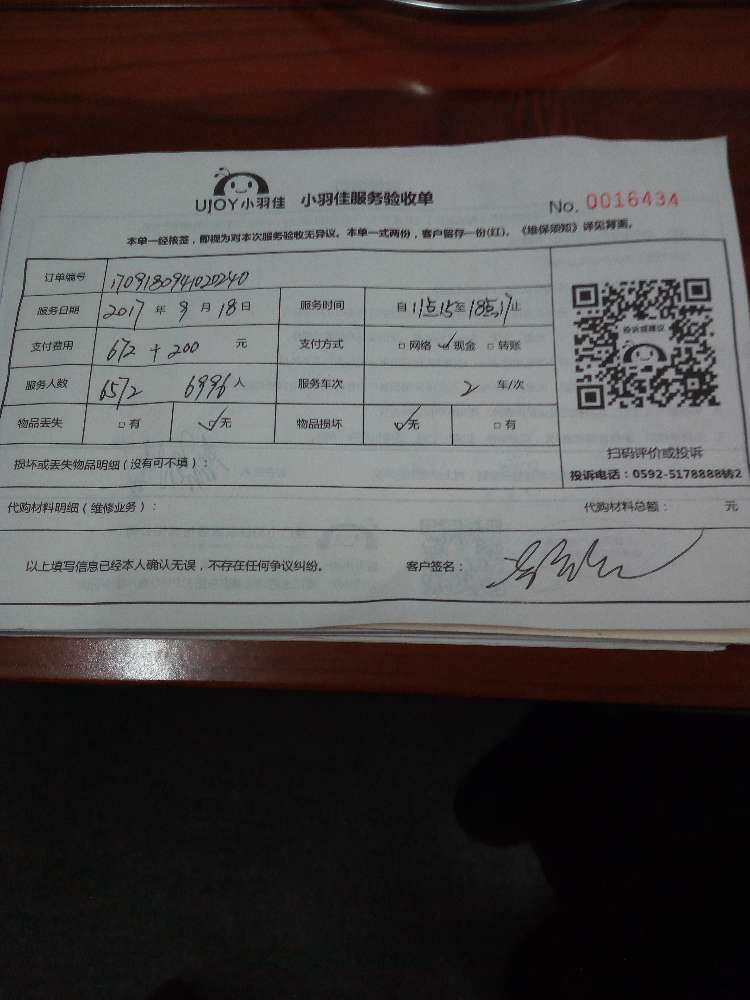 UJOY小羽佳 小羽佳服务验收单 No. 0016434
本单一经核签，即视为对本次服务验收无异议。本单一式两份，客户留存一份(红)。《维保须知》详见背面。
订单编号 1709180941020240
服务日期 2017 年 9 月 18 日 服务时间 自 11:15 至 18:17 止
支付费用 672 + 200 元 支付方式 □ 网络 ☑ 现金 □ 转账
投诉或建议
服务人数 6572 6996 人 服务车次 2 车/次
物品丢失 □ 有 ☑ 无 物品损坏 ☑ 无 □ 有
扫码评价或投诉
损坏或丢失物品明细（没有可不填）：
投诉电话：0592-5178888转2
代购材料明细（维修业务）： 代购材料总额： 元
以上填写信息已经本人确认无误，不存在任何争议纠纷。 客户签名：